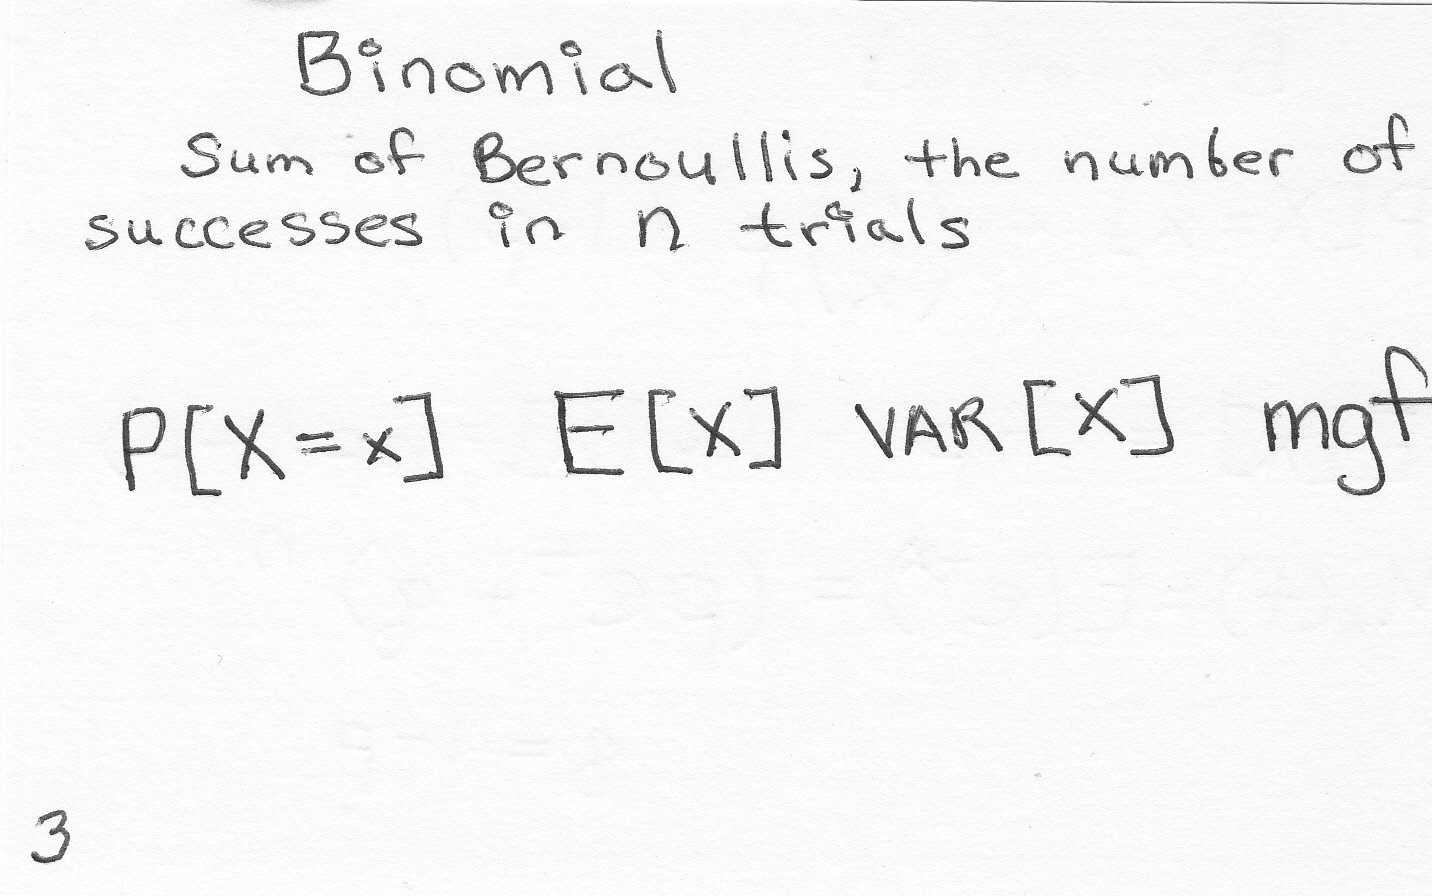 Binomial
Sum of Bernoullis, the number of
successes in n trials
P[X=x] E[X] VAR[X] mgf
3